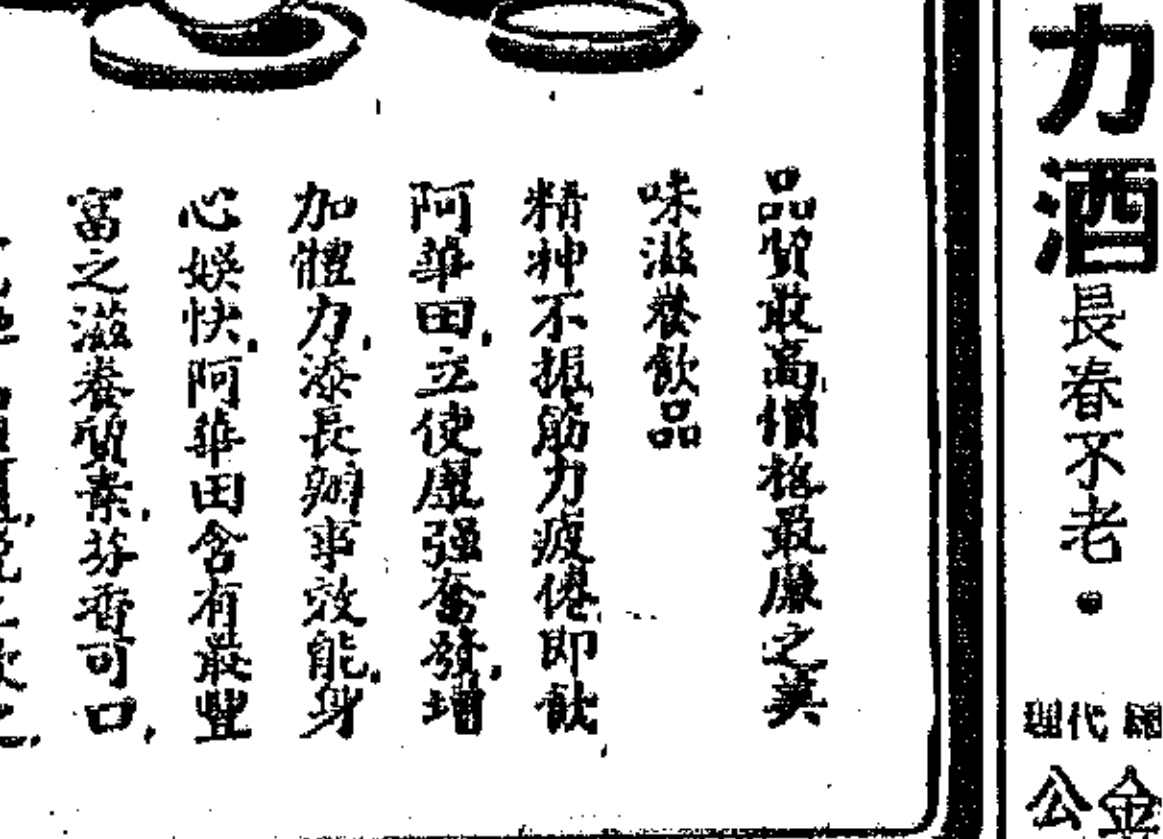 力酒長春不老。
總代理
金公
品質最高價格最廉之美
味滋養飲品
精神不振筋力疲倦即飲
阿華田，立使康强奮發，增
加體力，添長辦事效能，身
心娛快，阿華田含有最豐
富之滋養質素，芬香可口，